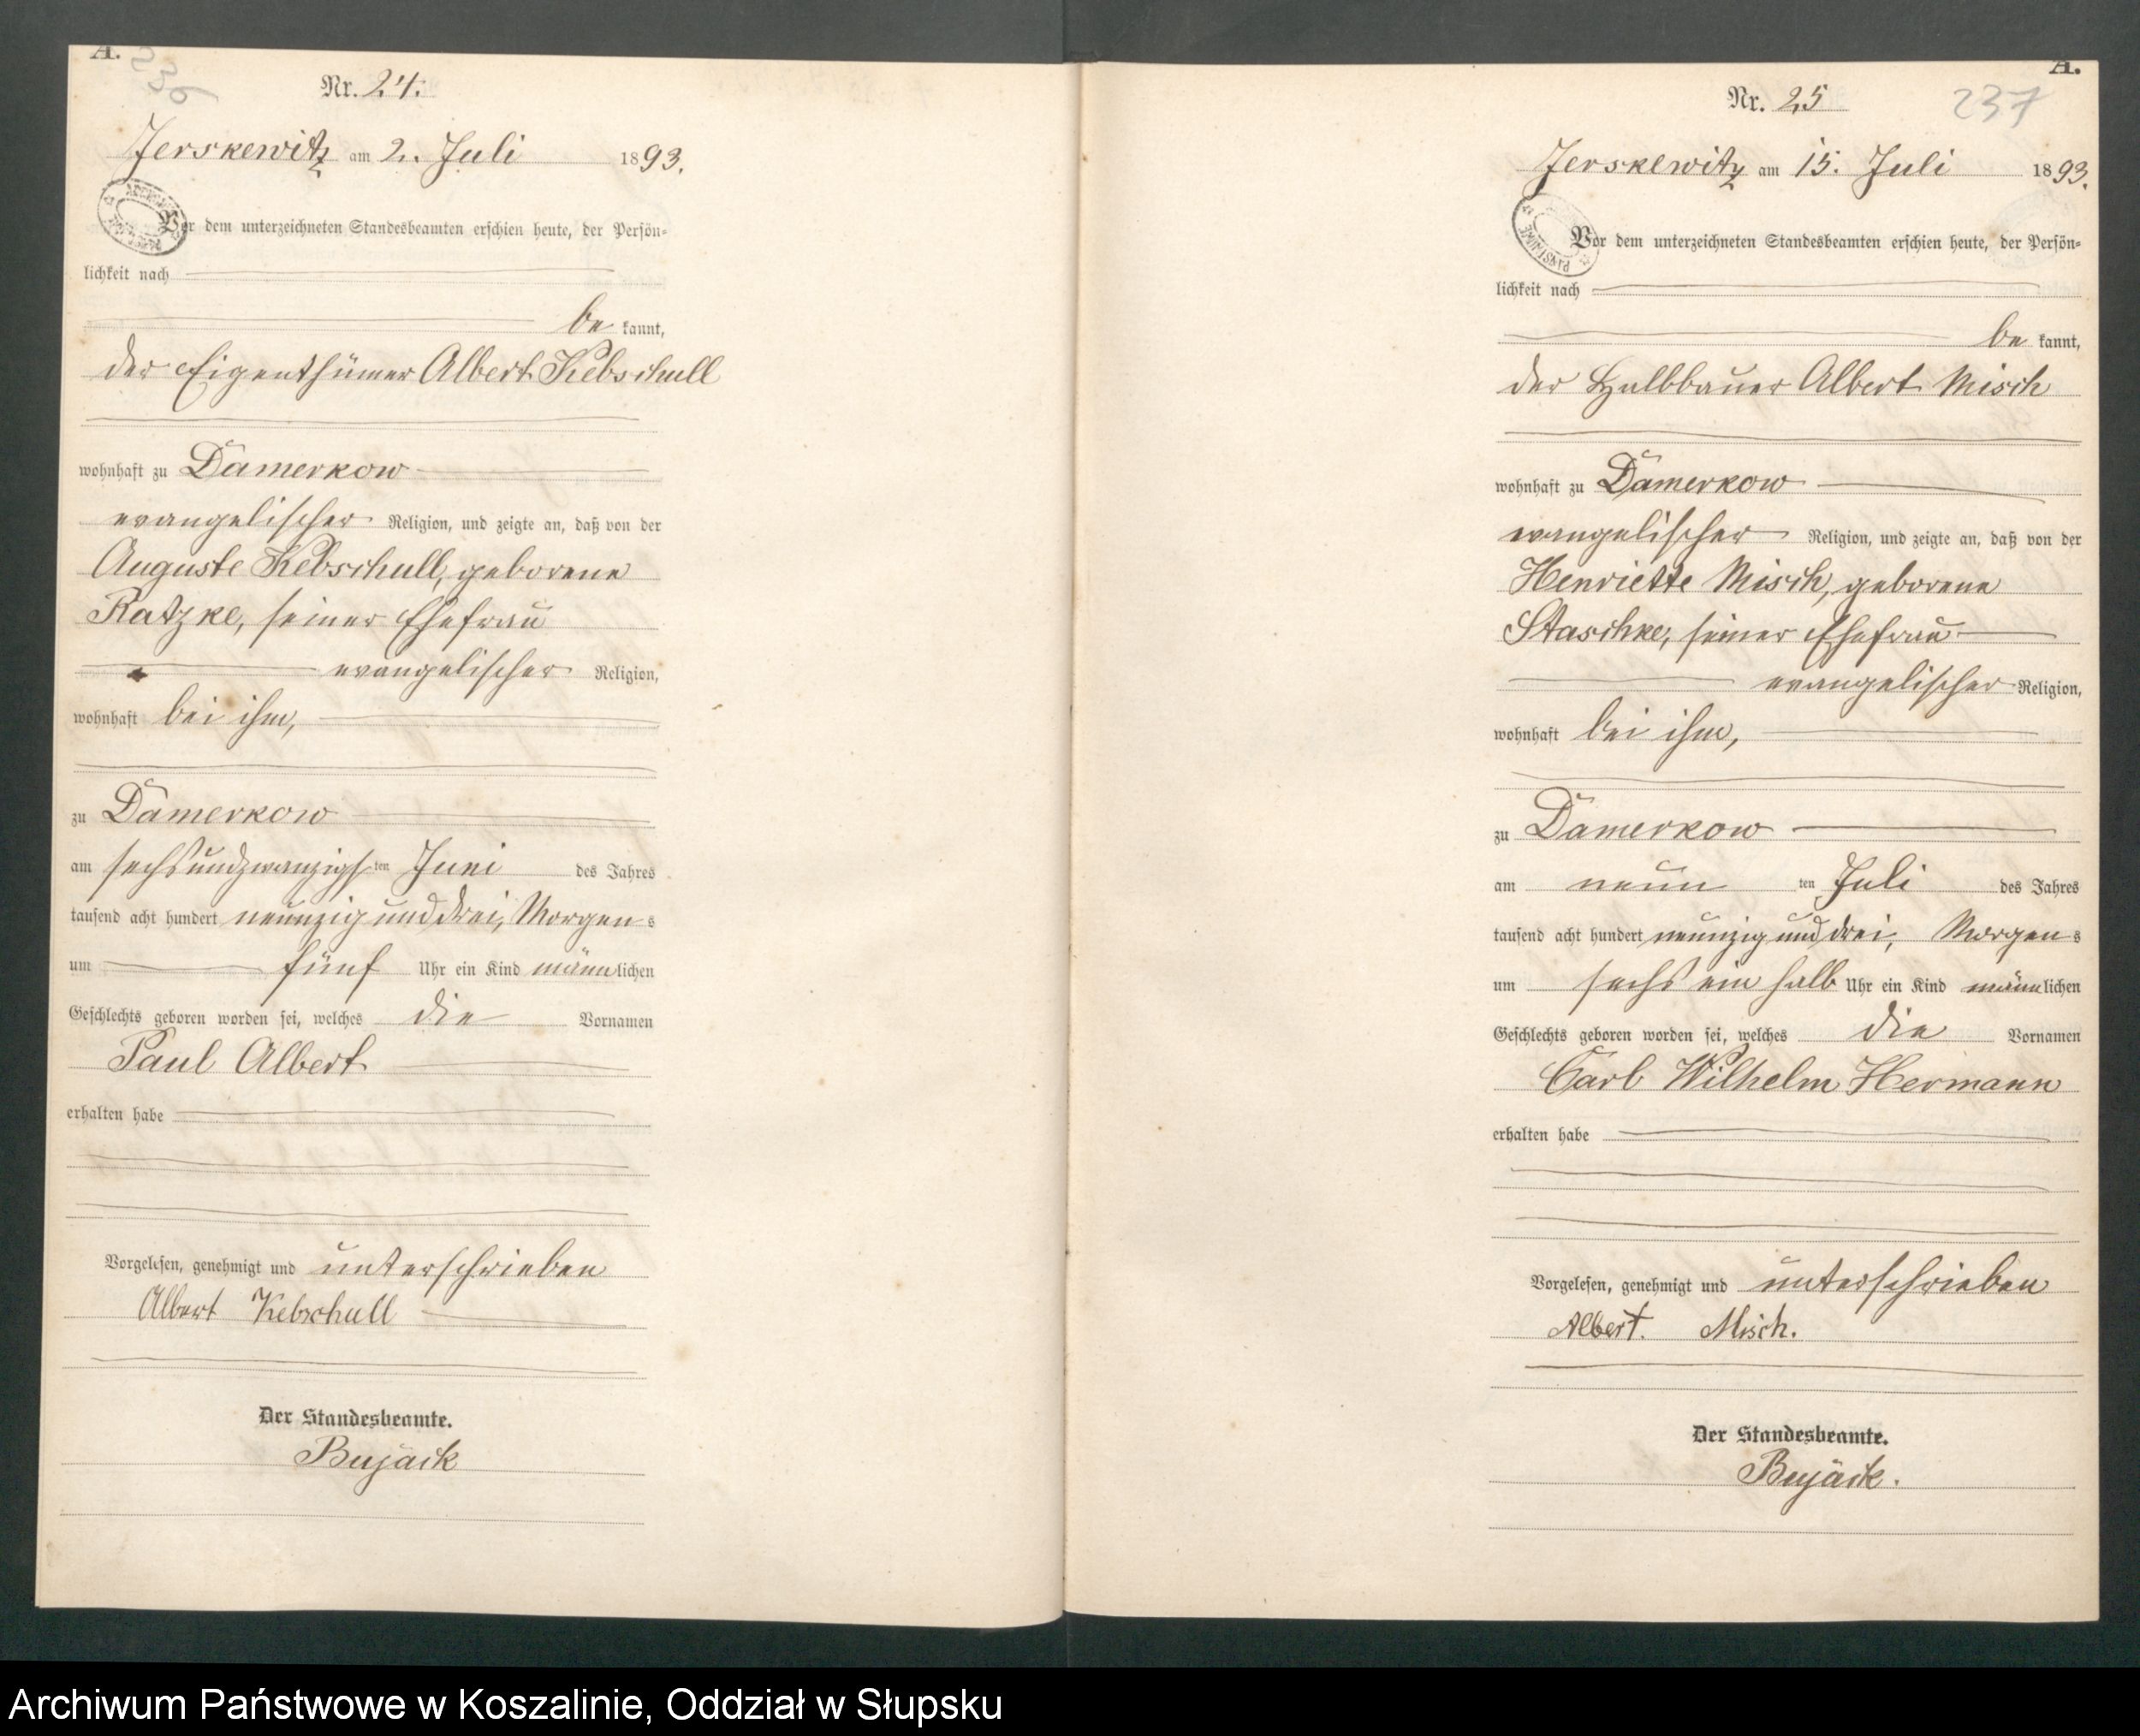 A.
236
Nr. 24.
Jerskewitz am 2. Juli 1893.
Vor dem unterzeichneten Standesbeamten erschien heute, der Persön-
lichkeit nach
be kannt,
der Eigenthümer Albert Kebschull
wohnhaft zu Damerkow
evangelischer Religion, und zeigte an, daß von der
Auguste Kebschull, geborene
Ratzke, seiner Ehefrau
evangelischer Religion,
wohnhaft bei ihm,
zu Damerkow
am sechsundzwanzigsten Juni des Jahres
tausend acht hundert neunzig und drei, Morgens
um fünf Uhr ein Kind männlichen
Geschlechts geboren worden sei, welches die Vornamen
Paul Albert
erhalten habe
Vorgelesen, genehmigt und unterschrieben
Albert Kebschull
Der Standesbeamte.
Bujack
A.
237
Nr. 25
Jerskewitz am 15. Juli 1893.
Vor dem unterzeichneten Standesbeamten erschien heute, der Persön-
lichkeit nach
be kannt,
der Halbbauer Albert Misch
wohnhaft zu Damerkow
evangelischer Religion, und zeigte an, daß von der
Henriette Misch, geborene
Staschke, seiner Ehefrau
evangelischer Religion,
wohnhaft bei ihm,
zu Damerkow
am neun ten Juli des Jahres
tausend acht hundert neunzig und drei, Morgens
um sechs ein halb Uhr ein Kind männlichen
Geschlechts geboren worden sei, welches die Vornamen
Carl Wilhelm Hermann
erhalten habe
Vorgelesen, genehmigt und unterschrieben
Albert. Misch.
Der Standesbeamte.
Bujack.
Archiwum Państwowe w Koszalinie, Oddział w Słupsku